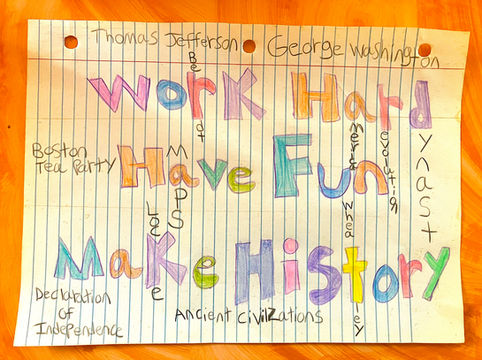 Thomas Jefferson George Washington
Work Hard
Boston
Tea Party
Have Fun
maPS
merica
evolution
ynast
Loc
e
whea
ley
Make History
Declaration
of
Independence
Ancient Civilizations